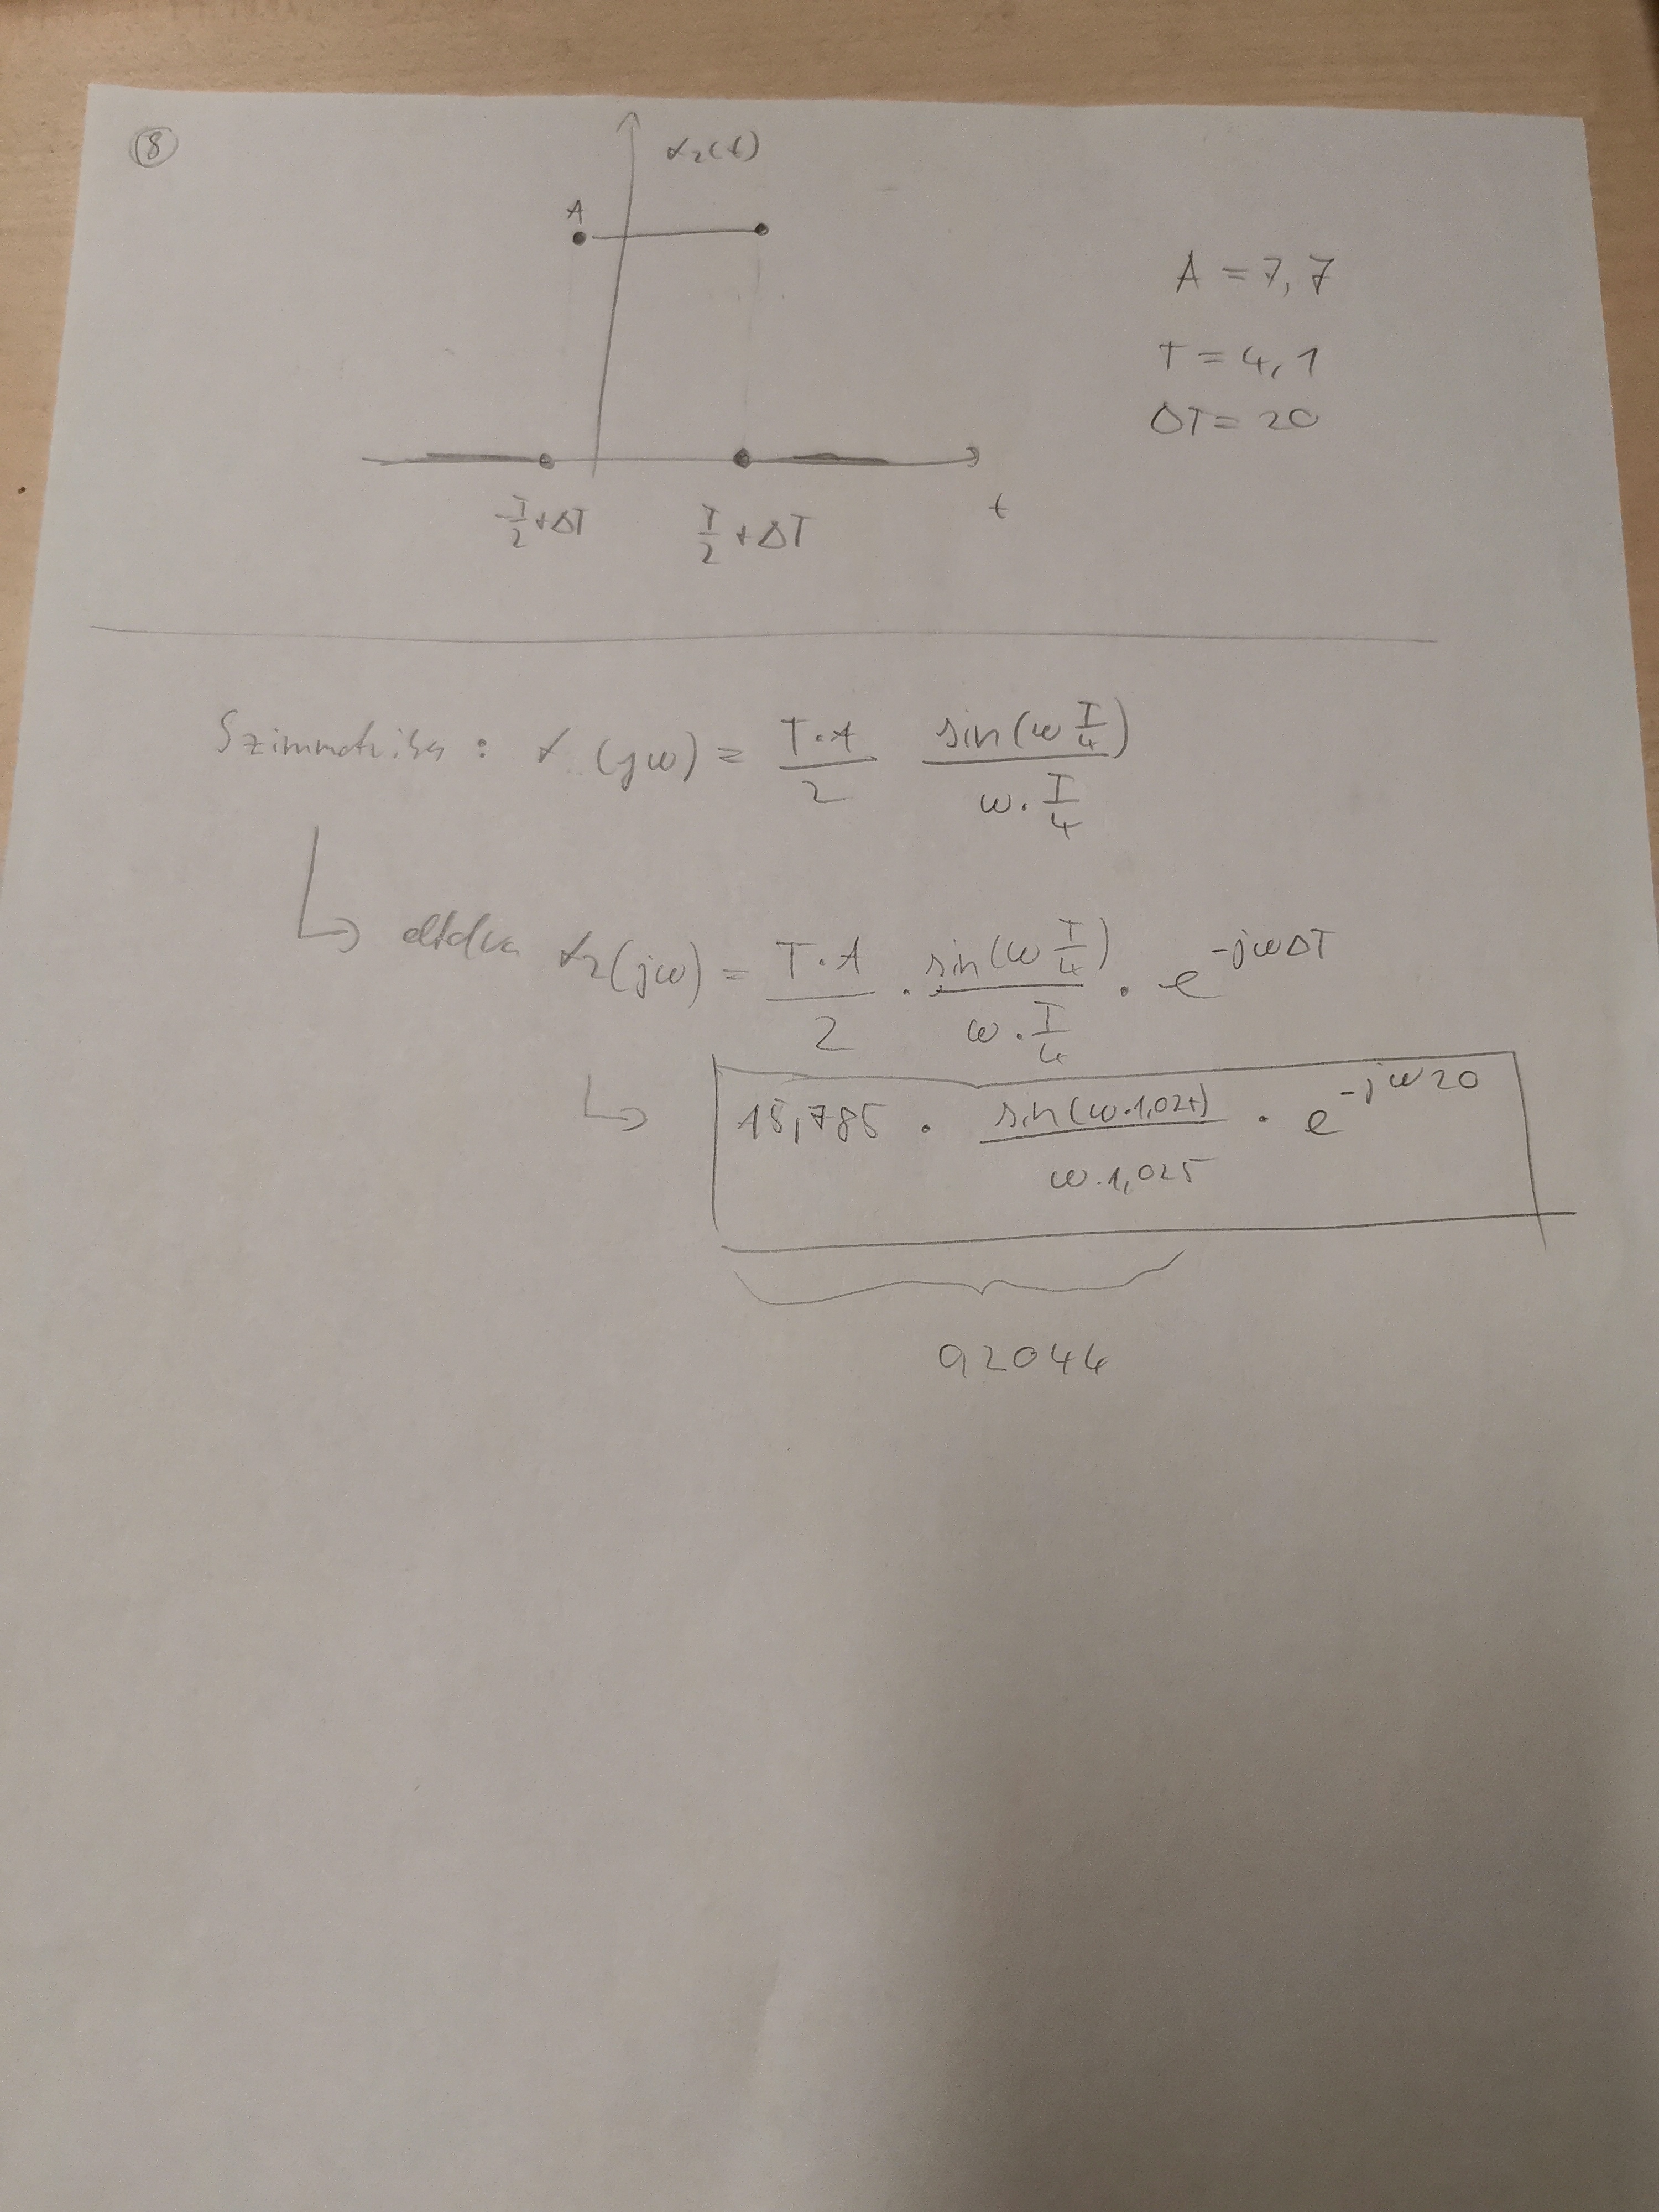 8
x₂(t)
A
A = 7,7
T = 4,1
ΔT = 20
-T/2 + ΔT
T/2 + ΔT
t
Szimmetrikus: x (jω) = T·A/2 sin(ω T/4)/(ω · T/4)
↳ eltolva x₂(jω) = T·A/2 · sin(ω T/4)/(ω · T/4) · e^(-jωΔT)
↳ 15,785 · sin(ω·1,025)/(ω·1,025) · e^(-jω20)
92044